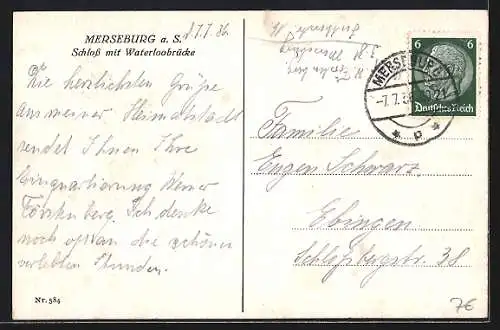 MERSEBURG a. S.
Schloß mit Waterloobrücke
d. 7.7.36
Die herzlichsten Grüße
aus meiner Heimatstadt
sendet Ihnen Ihre
Einquartierung Werner
Ich denke
noch oft an die schönen
verlebten Stunden.
Nr. 584
6 6
Deutsches Reich
MERSEBURG
-7.7.36
Familie
Eugen Schwarz
Ebingen
Schloßbergstr. 38
7€